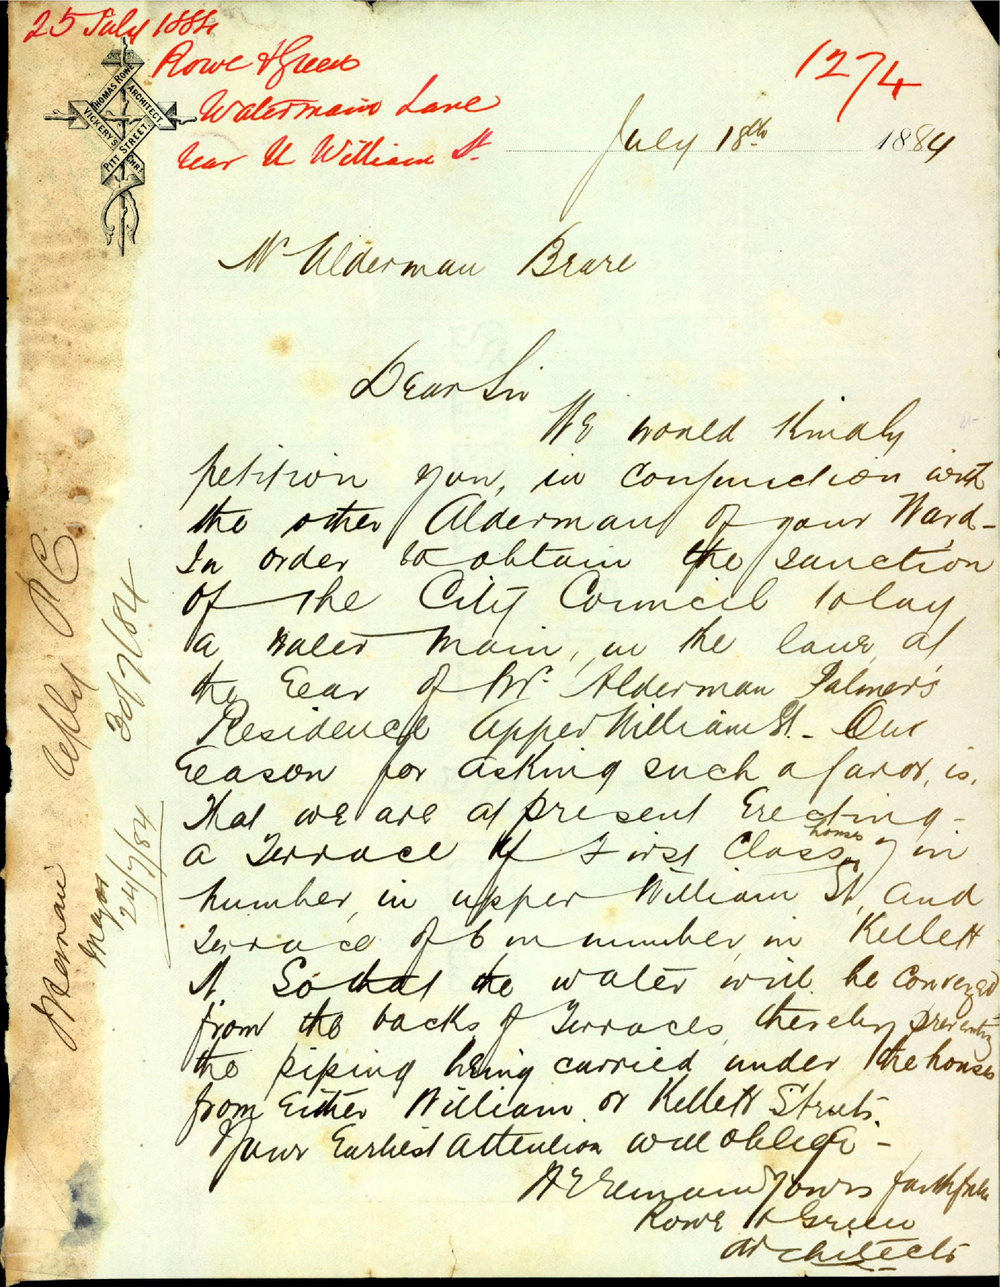 25 July 1884
Rowe & Green
Watermain Lane
rear U William St.
1274
THOMAS ROWE
ARCHITECT.
VICKERY'S
PITT STREET.
CHRS.
July 18th 1884
Mr Alderman Beare
Dear Sir
We would Kindly
petition you, in conjunction with
the other Alderman of your Ward -
In order to obtain the sanction
of the City Council to lay
a Water Main, in the lane, at
the Rear of Mr. Alderman Palmer's
Residence Upper William St. - Our
Reason for asking such a favor, is,
That we are at present Erecting -
a Terrace of First Class houses 7 in
number, in upper William St, and
Terrace of 6 in number, in Kellett
St. So that the water will be conveyed
from the backs of Terraces, thereby preventing
the piping being carried under the houses
from Either William or Kellett Streets.
Your Earliest Attention will oblige -
We Remain Yours faithfully
Rowe & Green
Architects
Mayor
24/7/84
30/7/84